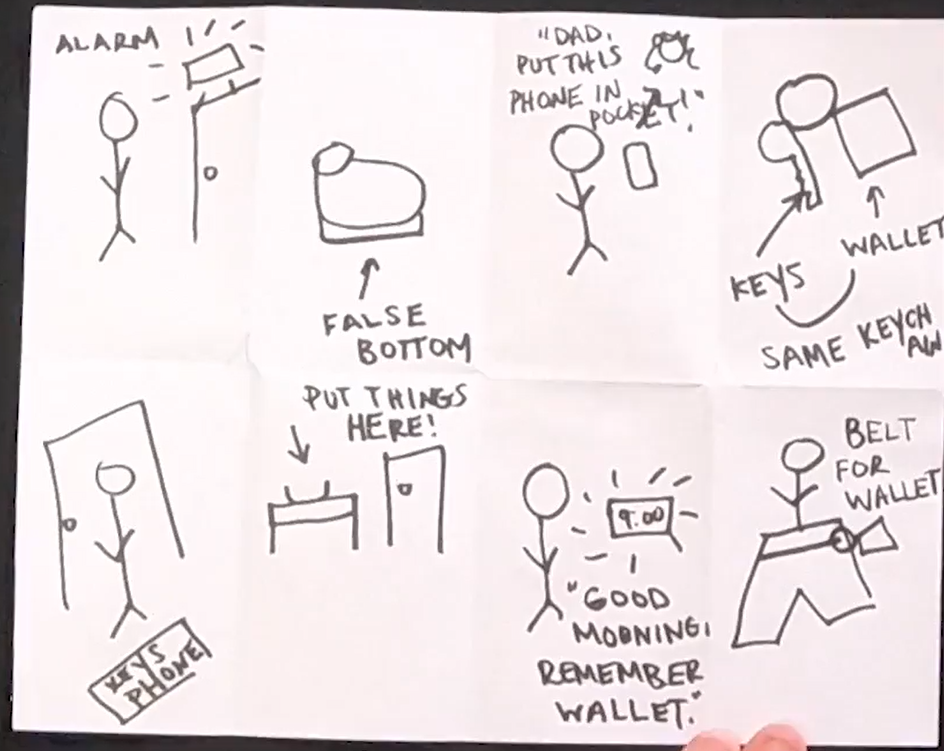 ALARM
FALSE
BOTTOM
"DAD,
PUT THIS
PHONE IN
POCKET!"
KEYS
WALLET
SAME KEYCH
AIN
KEYS
PHONE
PUT THINGS
HERE!
9:00
"GOOD
MORNING,
REMEMBER
WALLET."
BELT
FOR
WALLET